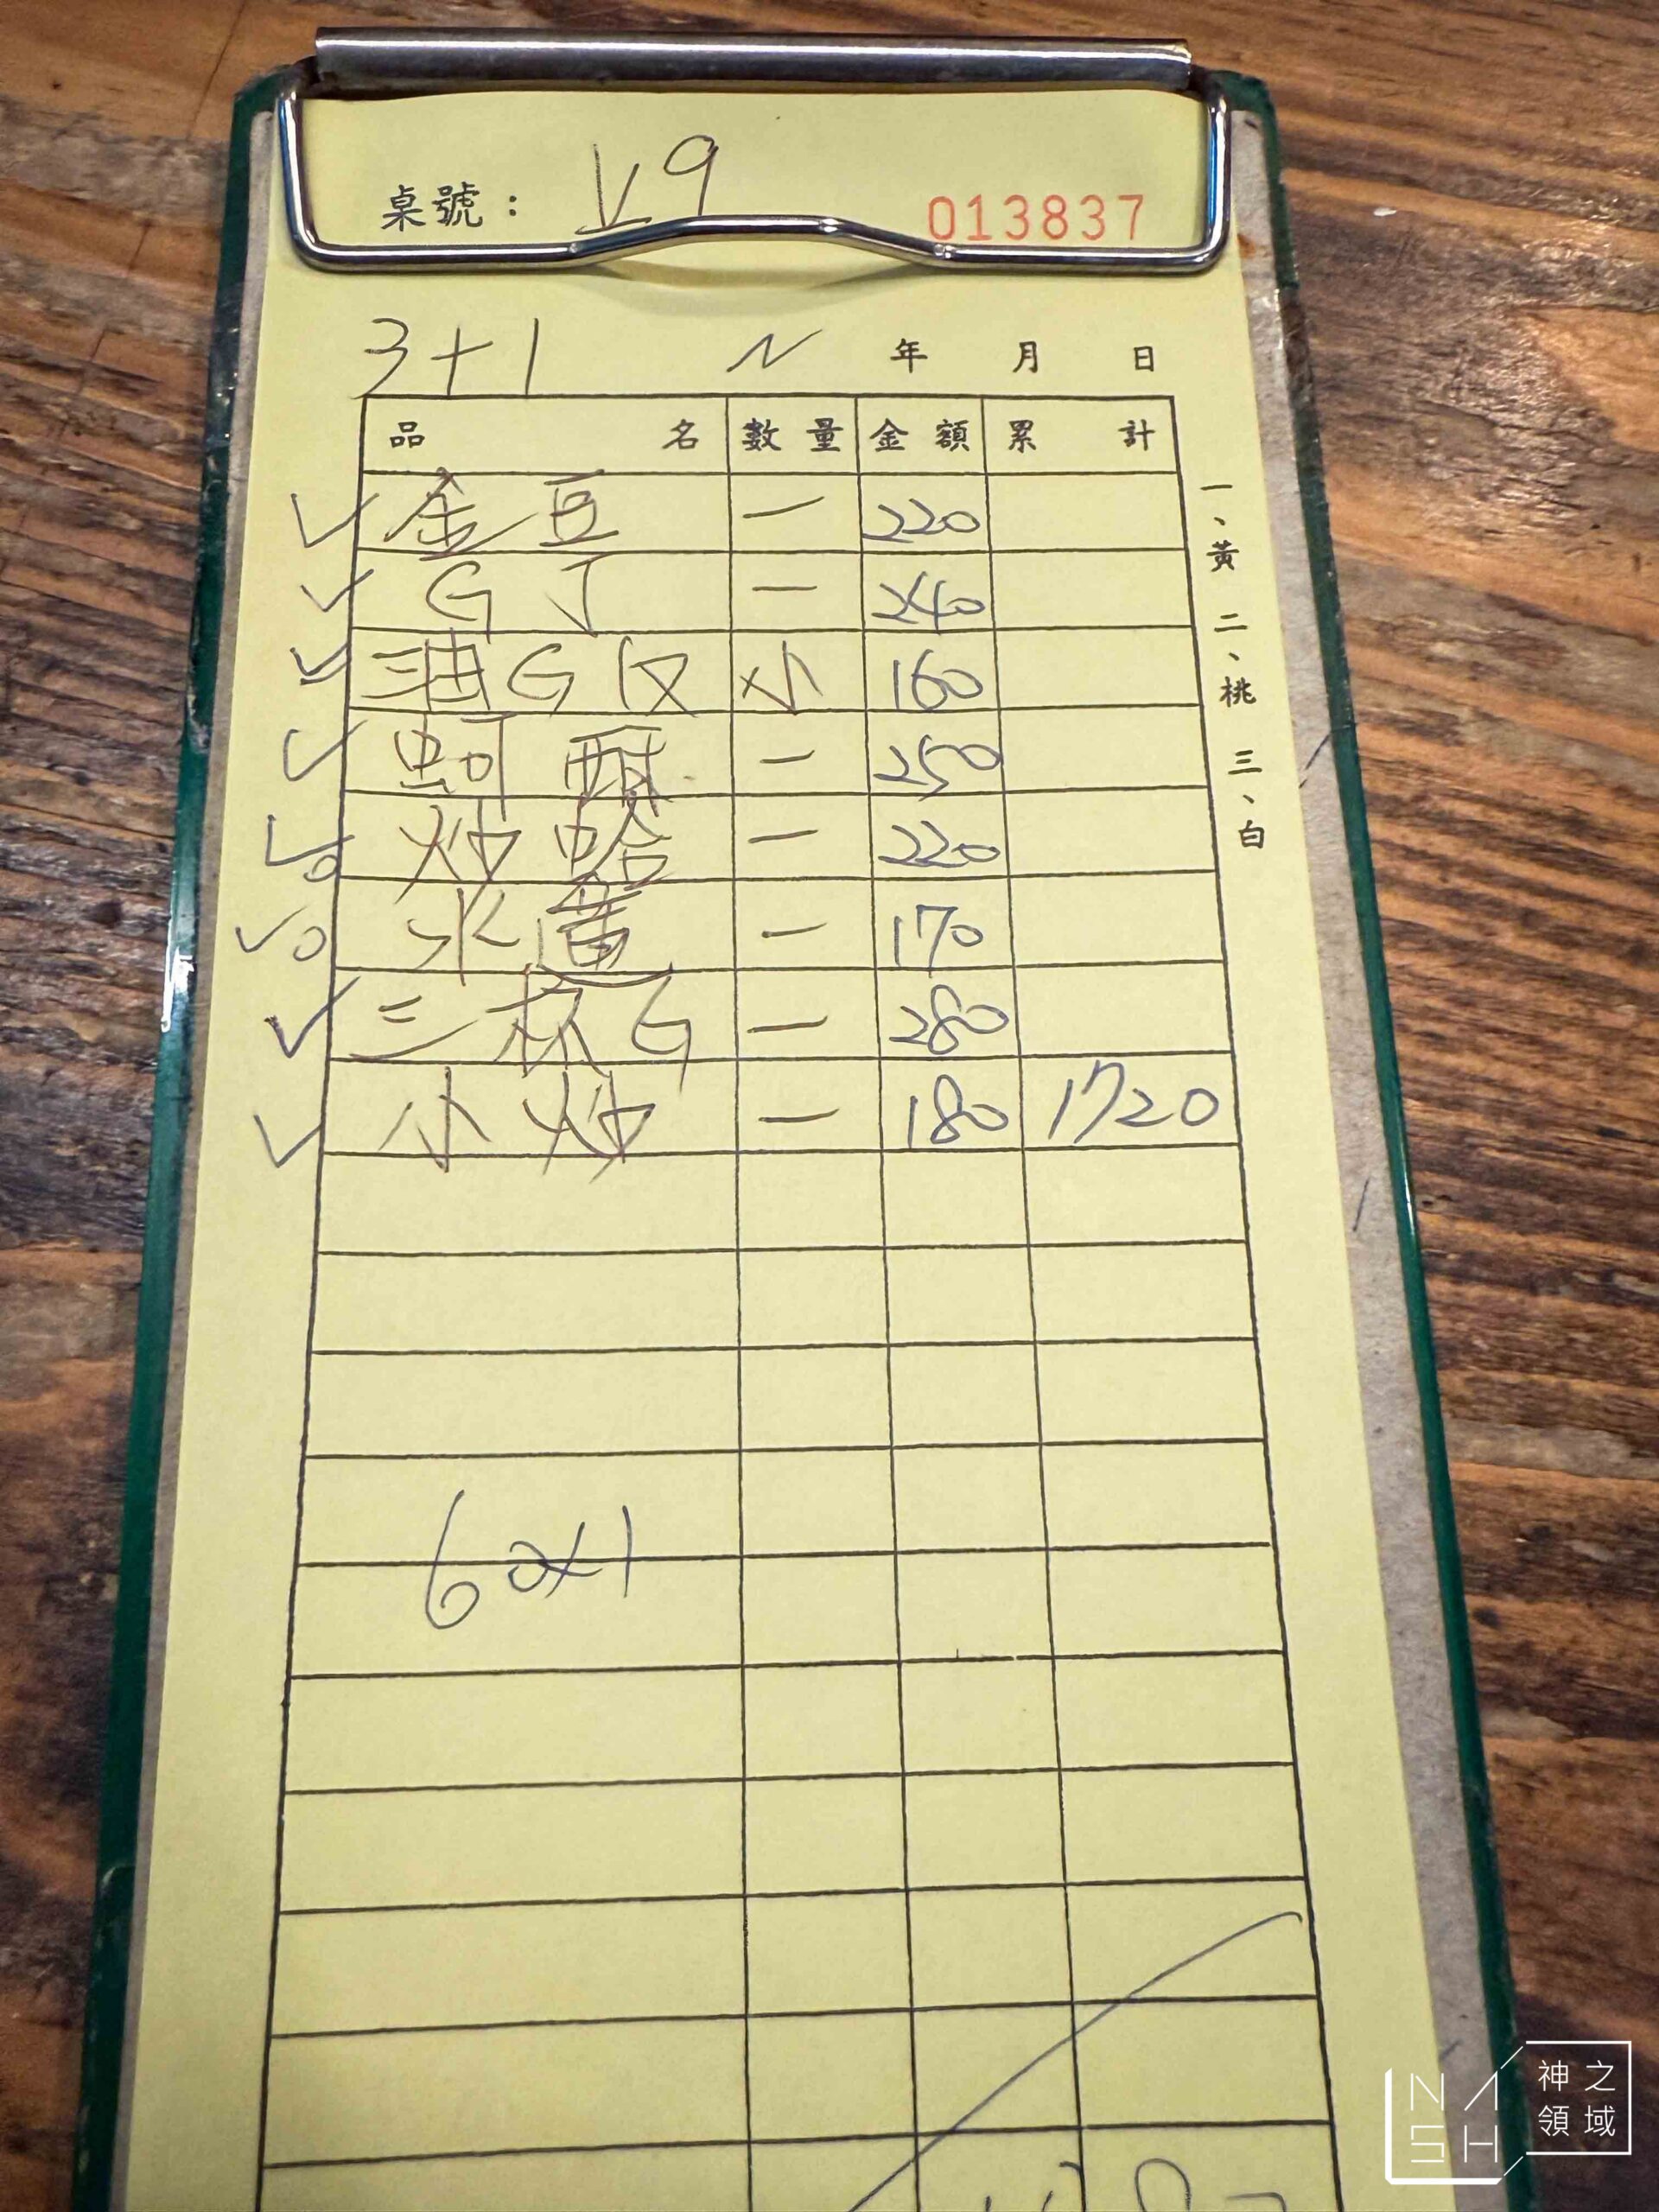 桌號： V9 013837
3+1 N 年 月 日
品名 數量 金額 累計
金豆 一 220
G丁 一 240
油G仅 小 160
蚵酥 一 250
炒蛤 一 220
水蓮 一 170
三杯G 一 280
小炒 一 180 1720
一、黃 二、桃 三、白
60x1
NASH 神之領域